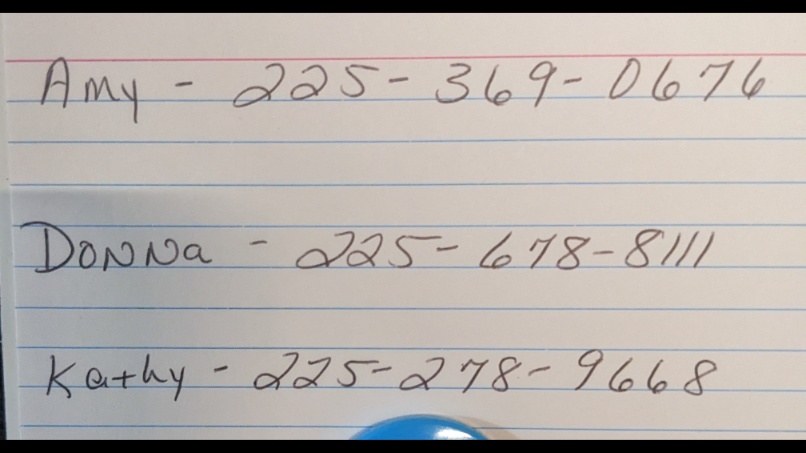 Amy - 225-369-0676
Donna - 225-678-8111
Kathy - 225-278-9668